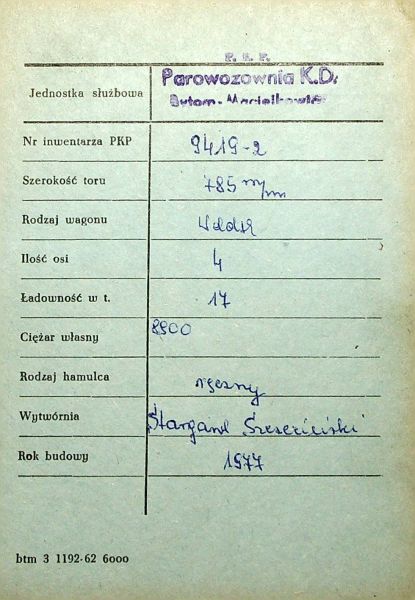 P. K. P.
Jednostka służbowa Parowozownia K.D.
Bytom-
Nr inwentarza PKP 9419-2
Szerokość toru 785 m/m
Rodzaj wagonu Wddxh
Ilość osi 4
Ładowność w t. 17
Ciężar własny 8900
Rodzaj hamulca ręczny
Wytwórnia Stargard Szczeciński
Rok budowy 1977
btm 3 1192-62 6000